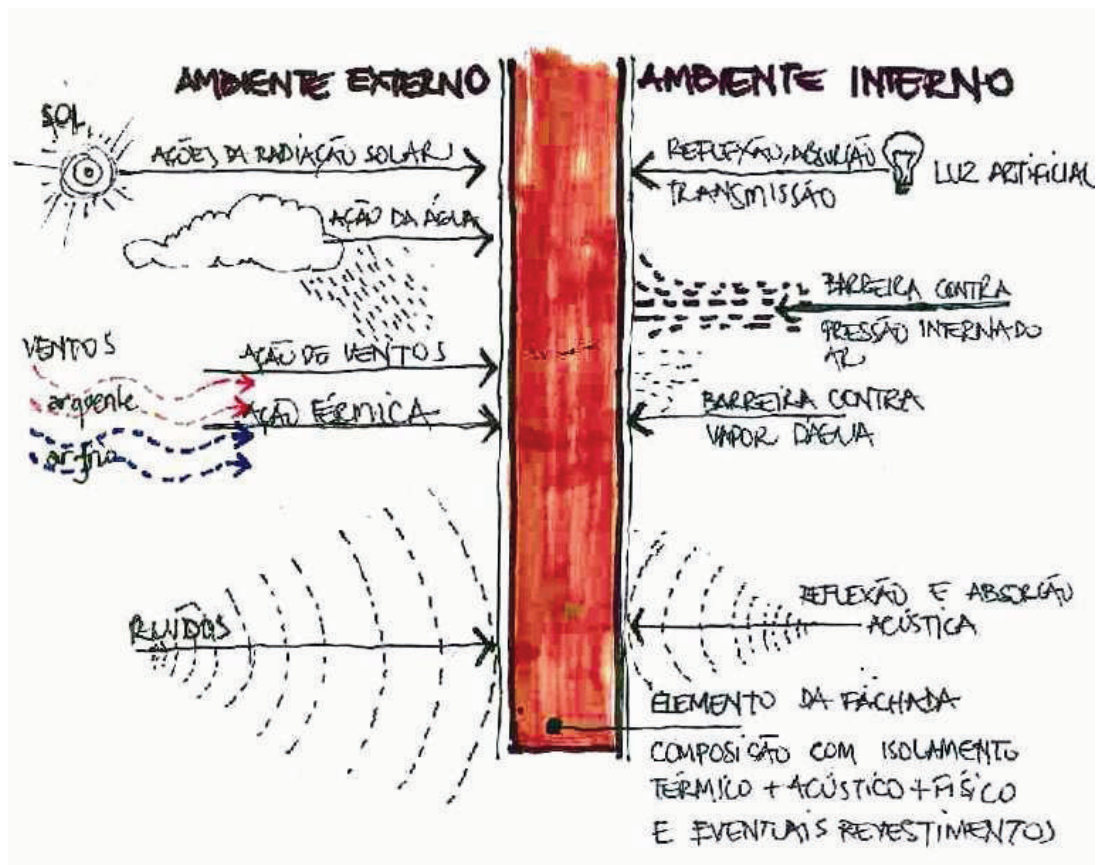 AMBIENTE EXTERNO
AMBIENTE INTERNO
SOL
AÇÕES DA RADIAÇÃO SOLAR
AÇÃO DA ÁGUA
VENTOS
AÇÃO DE VENTOS
ar quente
AÇÃO TÉRMICA
ar frio
RUÍDOS
REFLEXÃO, ABSORÇÃO
TRANSMISSÃO
LUZ ARTIFICIAL
BARREIRA CONTRA
PRESSÃO INTERNA DO
AR
BARREIRA CONTRA
VAPOR D'ÁGUA
REFLEXÃO E ABSORÇÃO
ACÚSTICA
ELEMENTO DA FACHADA
COMPOSIÇÃO COM ISOLAMENTO
TÉRMICO + ACÚSTICO + FÍSICO
E EVENTUAIS REVESTIMENTOS